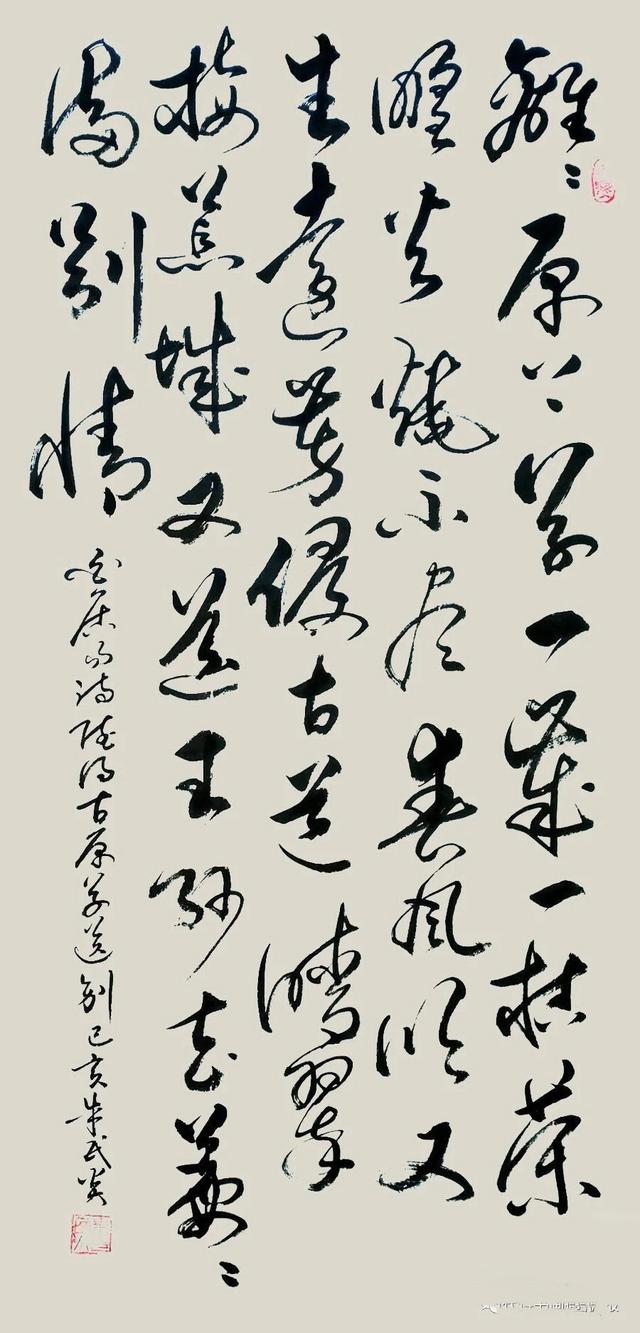 離々原上草一歲一枯榮
野火燒不盡春風吹又
生遠芳侵古道晴翠
接荒城又送王孫去萋々
滿別情
白居易詩賦得古原草送别己亥朱民